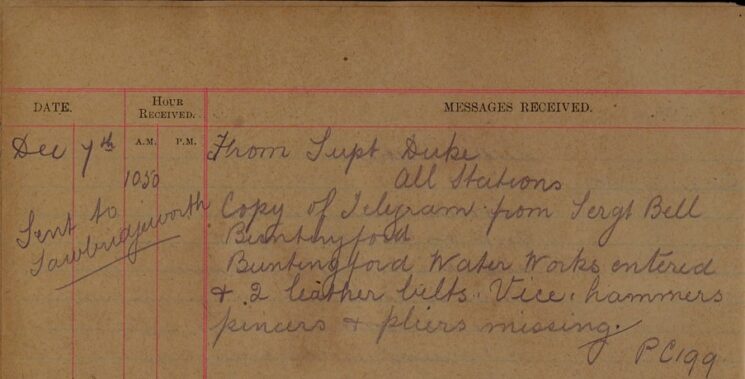 DATE.
HOUR
RECEIVED.
MESSAGES RECEIVED.
A.M. P.M.
Dec 7th
1050
From Supt Duke
All Stations
Sent to
Sawbridgeworth
Copy of Telegram from Sergt Bell
Buntingford
Buntingford Water Works entered
& 2 leather belts. Vice. hammers
pincers & pliers missing.
PC199